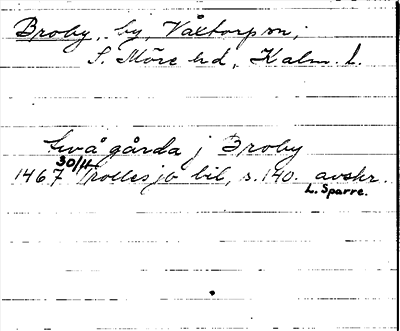 Broby, by, Växtorp sn,
S. Möre hd, Kalm. l.
twå gårda j Broby
1467 30/11 Trollesjö bil, s. 140. avskr.
L. Sparre.